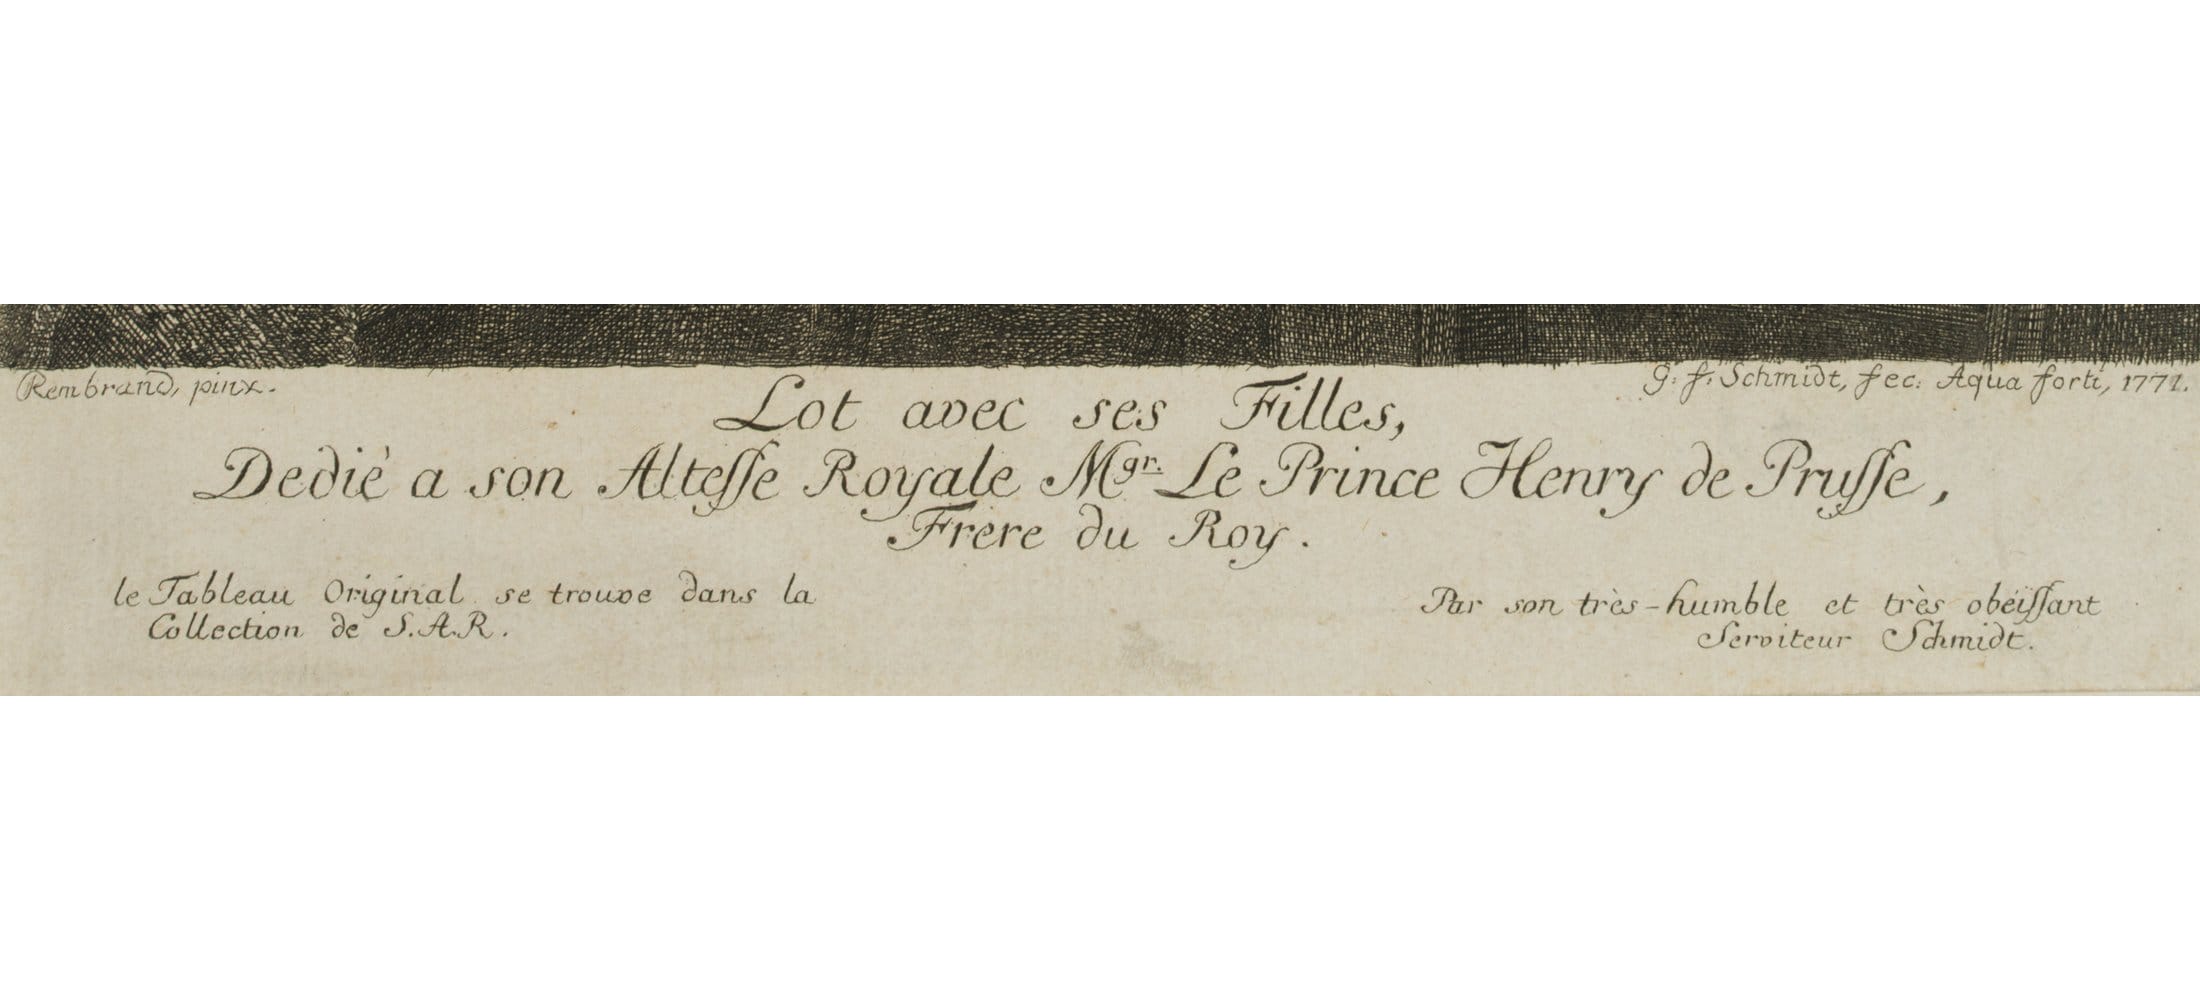 Rembrand, pinx.
G. f. Schmidt, fec: Aqua forti, 1771.
Lot avec ses Filles,
Dedié a son Altesse Royale Mgr. Le Prince Henry de Prusse,
Frere du Roy.
le Tableau Original se trouve dans la
Collection de S.A.R.
Par son très-humble et très obeïssant
Serviteur Schmidt.